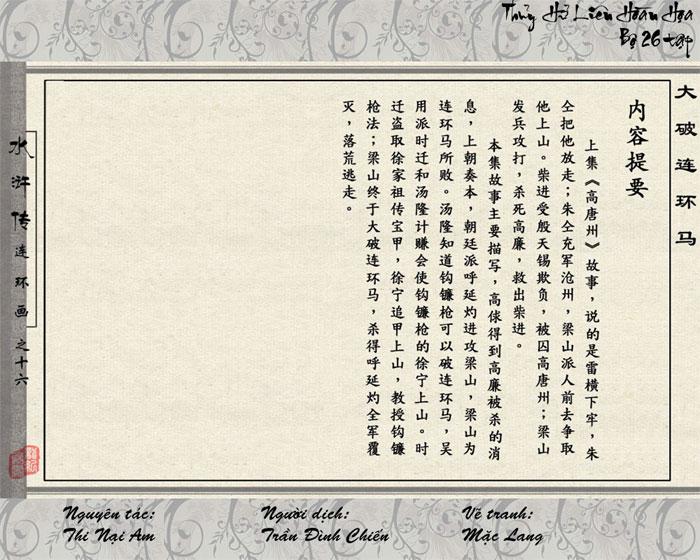 Thủy Hử Liên Hoàn Họa
Bộ 26 tập
大破连环马
内容提要
上集《高唐州》故事，说的是雷横下牢，朱
仝把他放走；朱仝充军沧州，梁山派人前去争取
他上山。柴进受殷天锡欺负，被囚高唐州；梁山
发兵攻打，杀死高廉，救出柴进。
本集故事主要描写，高俅得到高廉被杀的消
息，上朝奏本，朝廷派呼延灼进攻梁山，梁山为
连环马所败。汤隆知道钩镰枪可以破连环马，吴
用派时迁和汤隆计赚会使钩镰枪的徐宁上山。时
迁盗取徐家祖传宝甲，徐宁追甲上山，教授钩镰
枪法；梁山终于大破连环马，杀得呼延灼全军覆
灭，落荒逃走。
水浒传连环画之十六
Nguyên tác:
Thi Nại Am
Người dịch:
Trần Đình Chiến
Vẽ tranh:
Mặc Lang